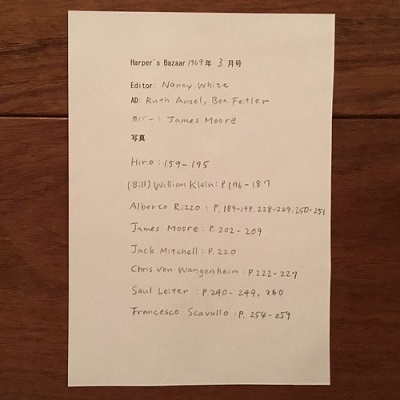 Harper's Bazaar 1969年 3 月号
Editor: Nancy White
AD: Ruth Ansel, Bea Feitler
カバー: James Moore
写真
Hiro: 159-175
(Bill) William Klein: P.176-187
Alberto Rizzo: P.189-199. 228-229. 250-251
James Moore: P.202-209
Jack Mitchell: P.220
Chris Von Wangenheim: P.222-227
Saul Leiter: P.240-249, 260
Francesco Scavullo: P.254-259